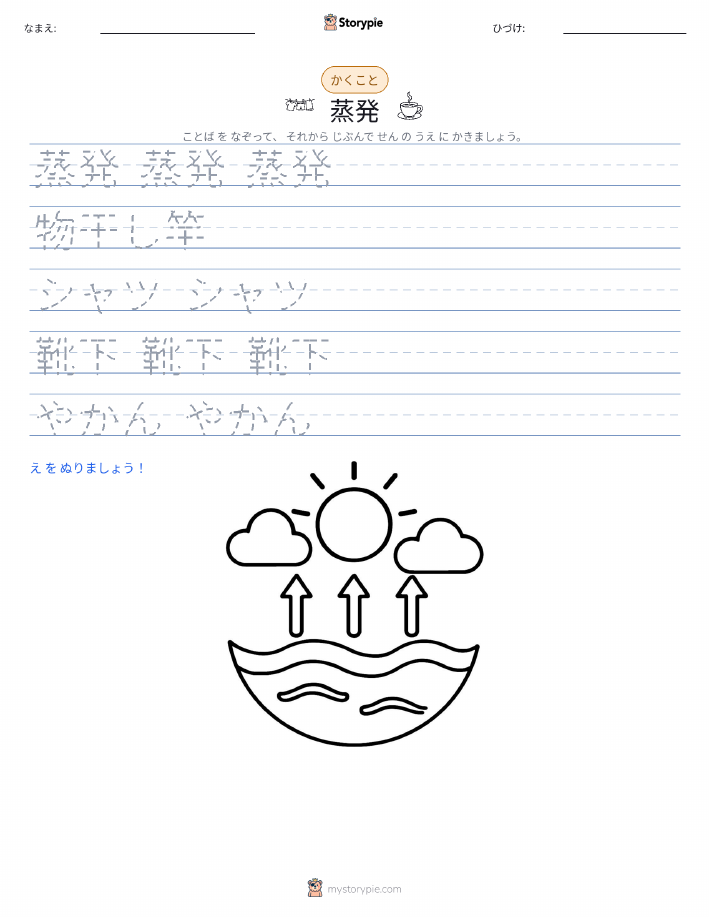 なまえ:
Storypie
ひづけ:
かくこと
蒸発
ことば を なぞって、 それから じぶんで せん の うえ に かきましょう。
蒸発 蒸発 蒸発
物干し竿
シャツ シャツ
靴下 靴下 靴下
やかん やかん
え を ぬりましょう！
mystorypie.com